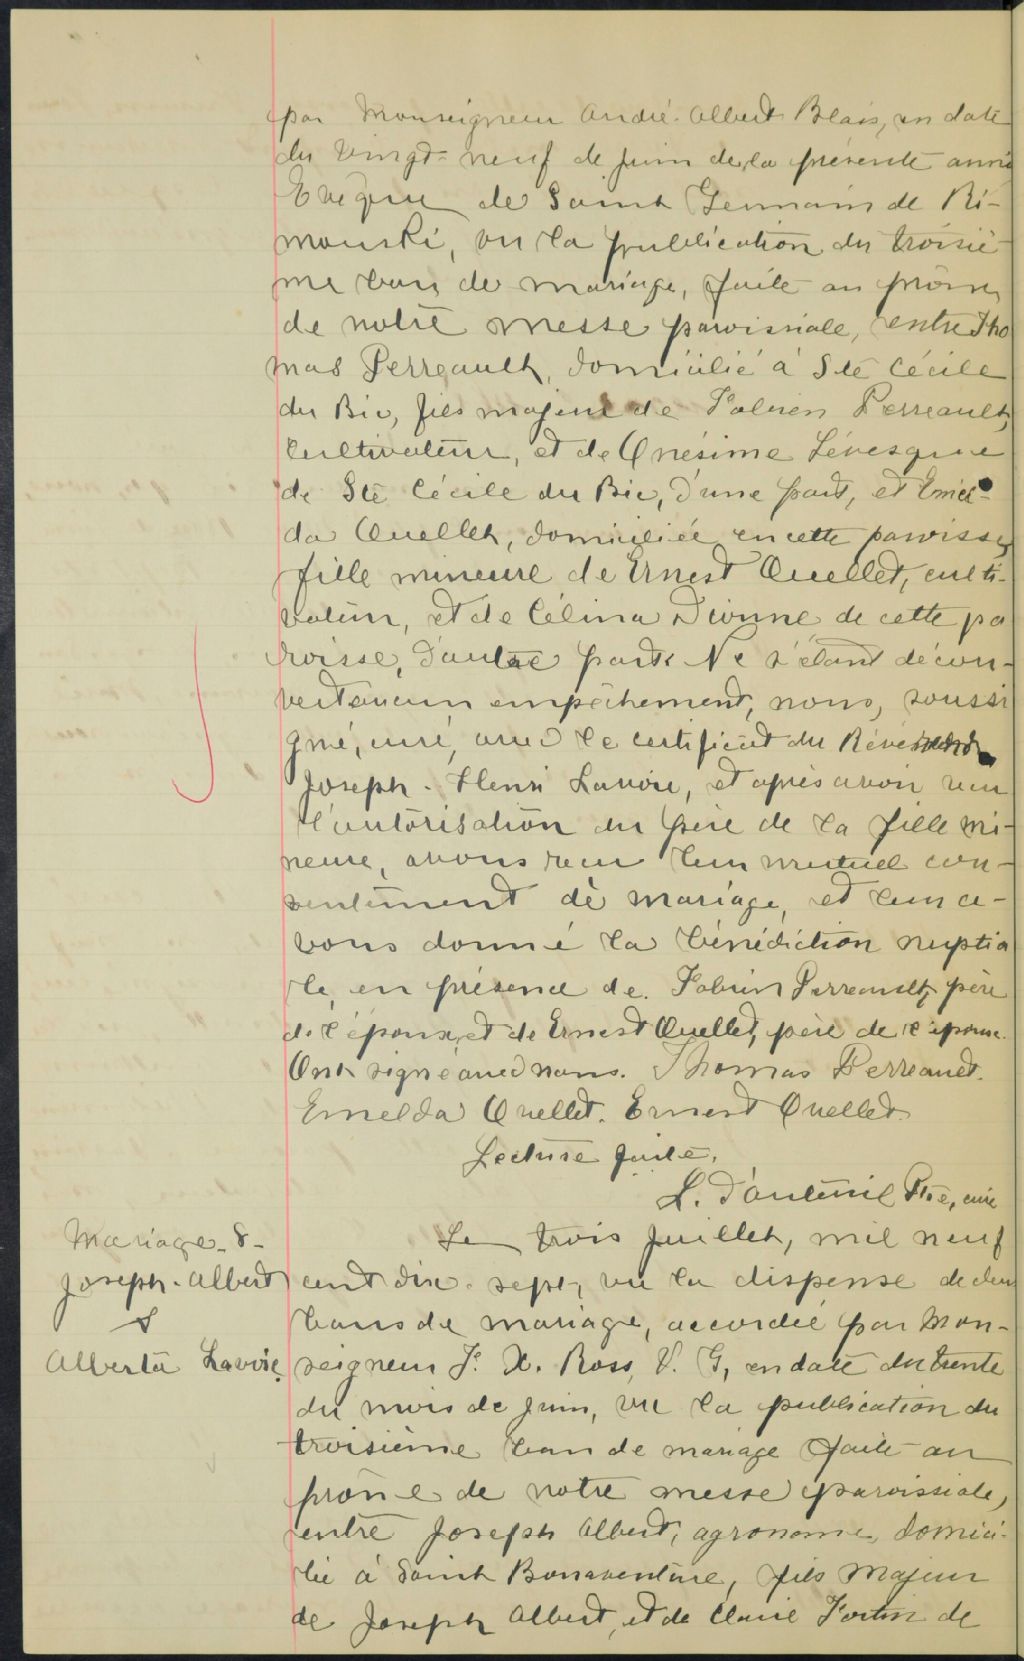 par Monseigneur André-Albert Blais, en date
du vingt-neuf de juin de la présente année
Evêque de Saint Germain de Ri-
mouski, vu la publication du troisiè-
me ban de mariage, faite au prône
de notre messe paroissiale, entre Tho
mas Perreault, domicilié à Ste Cécile
du Bic, fils majeur de Fabien Perreault,
cultivateur, et de Onésime Lévesque
de Ste Cécile du Bic, d'une part, et Emel-
da Ouellet, domiciliée en cette paroisse,
fille mineure de Ernest Ouellet, culti-
vateur, et de Célina Dionne de cette pa
roisse, d'autre part. Ne s'étant décou-
vert aucun empêchement, nous, soussi
gné, curé, avec le certificat du Révérend
Joseph-Henri Lavoie, et après avoir reçu
l'autorisation du père de la fille mi-
neure, avons reçu leur mutuel con-
sentement de mariage, et leur a-
vons donné la bénédiction nuptia
le, en présence de Fabien Perreault, père
de l'époux, et de Ernest Ouellet, père de l'épouse.
Ont signé avec nous. Thomas Perreault.
Emelda Ouellet. Ernest Ouellet
Lecture faite.
L. D'Auteuil Ptre, curé
Mariage-8-
Joseph-Albert
&
Alberta Lavoie
Le trois juillet, mil neuf
cent dix-sept, vu la dispense de deux
bans de mariage, accordée par Mon-
seigneur F. X. Ross, V. G, en date du trente
du mois de juin, vu la publication du
troisième ban de mariage faite au
prône de notre messe paroissiale,
entre Joseph Albert, agronome, domici-
lié à Saint Bonaventure, fils majeur
de Joseph Albert, et de Claire Fortin de